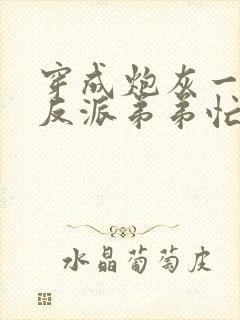 穿成炮灰一
反派弟弟忙
水晶葡萄皮